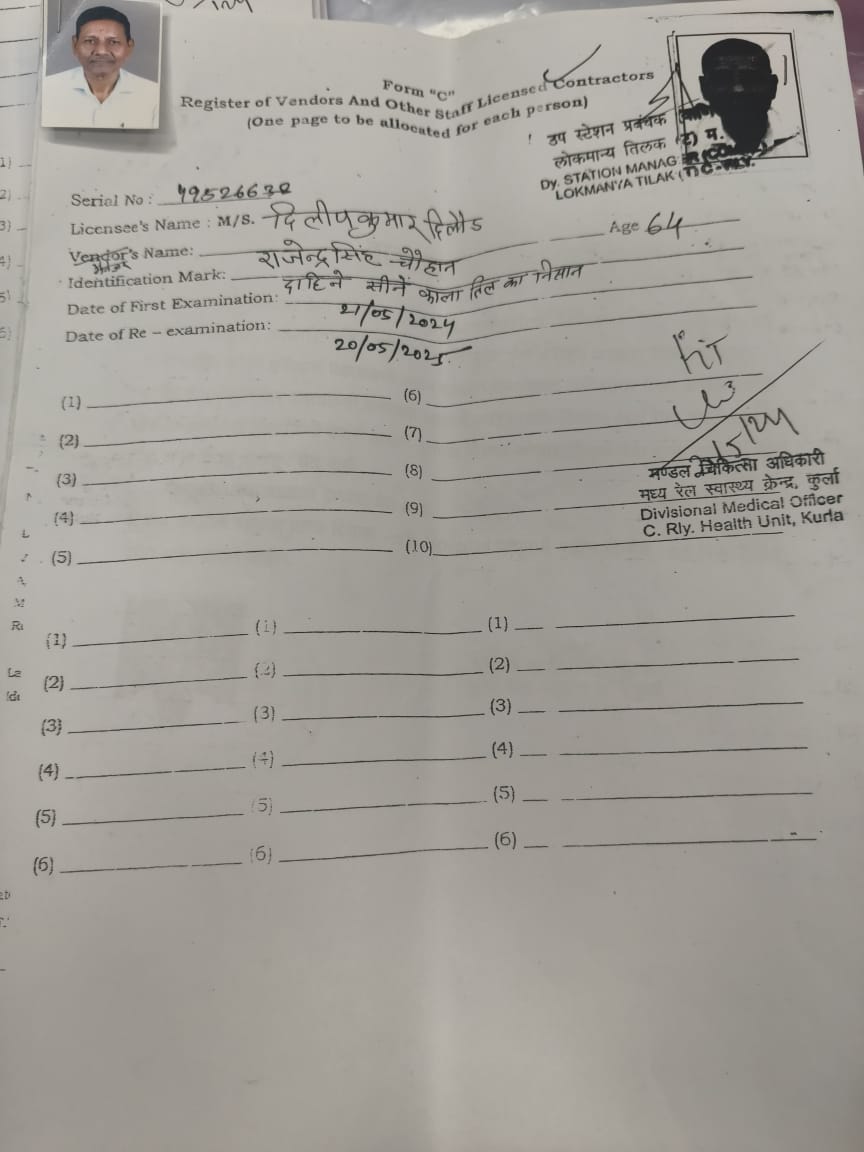 Form "C"
Register of Vendors And Other Staff Licensed Contractors
(One page to be allocated for each person)
उप स्टेशन प्रबंधक
लोकमान्य तिलक (ट) म.
Dy. STATION MANAG
LOKMANYA TILAK (T) C-RLY.
Serial No : 49526632
Licensee's Name : M/S. दिलीपकुमार
Age 64
Vendor's Name: राजेन्द्रसिंह चौहान
मैनेजर
Identification Mark: दाहिने सीने काला तिल का निसान
Date of First Examination: 21/05/2024
Date of Re – examination: 20/05/2025
FIT
(1) (6)
(2) (7)
(3) (8)
(4) (9)
(5) (10)
मण्डल चिकित्सा अधिकारी
मध्य रेल स्वास्थ्य केन्द्र, कुर्ला
Divisional Medical Officer
C. Rly. Health Unit, Kurla
(1) (1) (1)
(2) (2) (2)
(3) (3) (3)
(4) (4) (4)
(5) (5) (5)
(6) (6) (6)